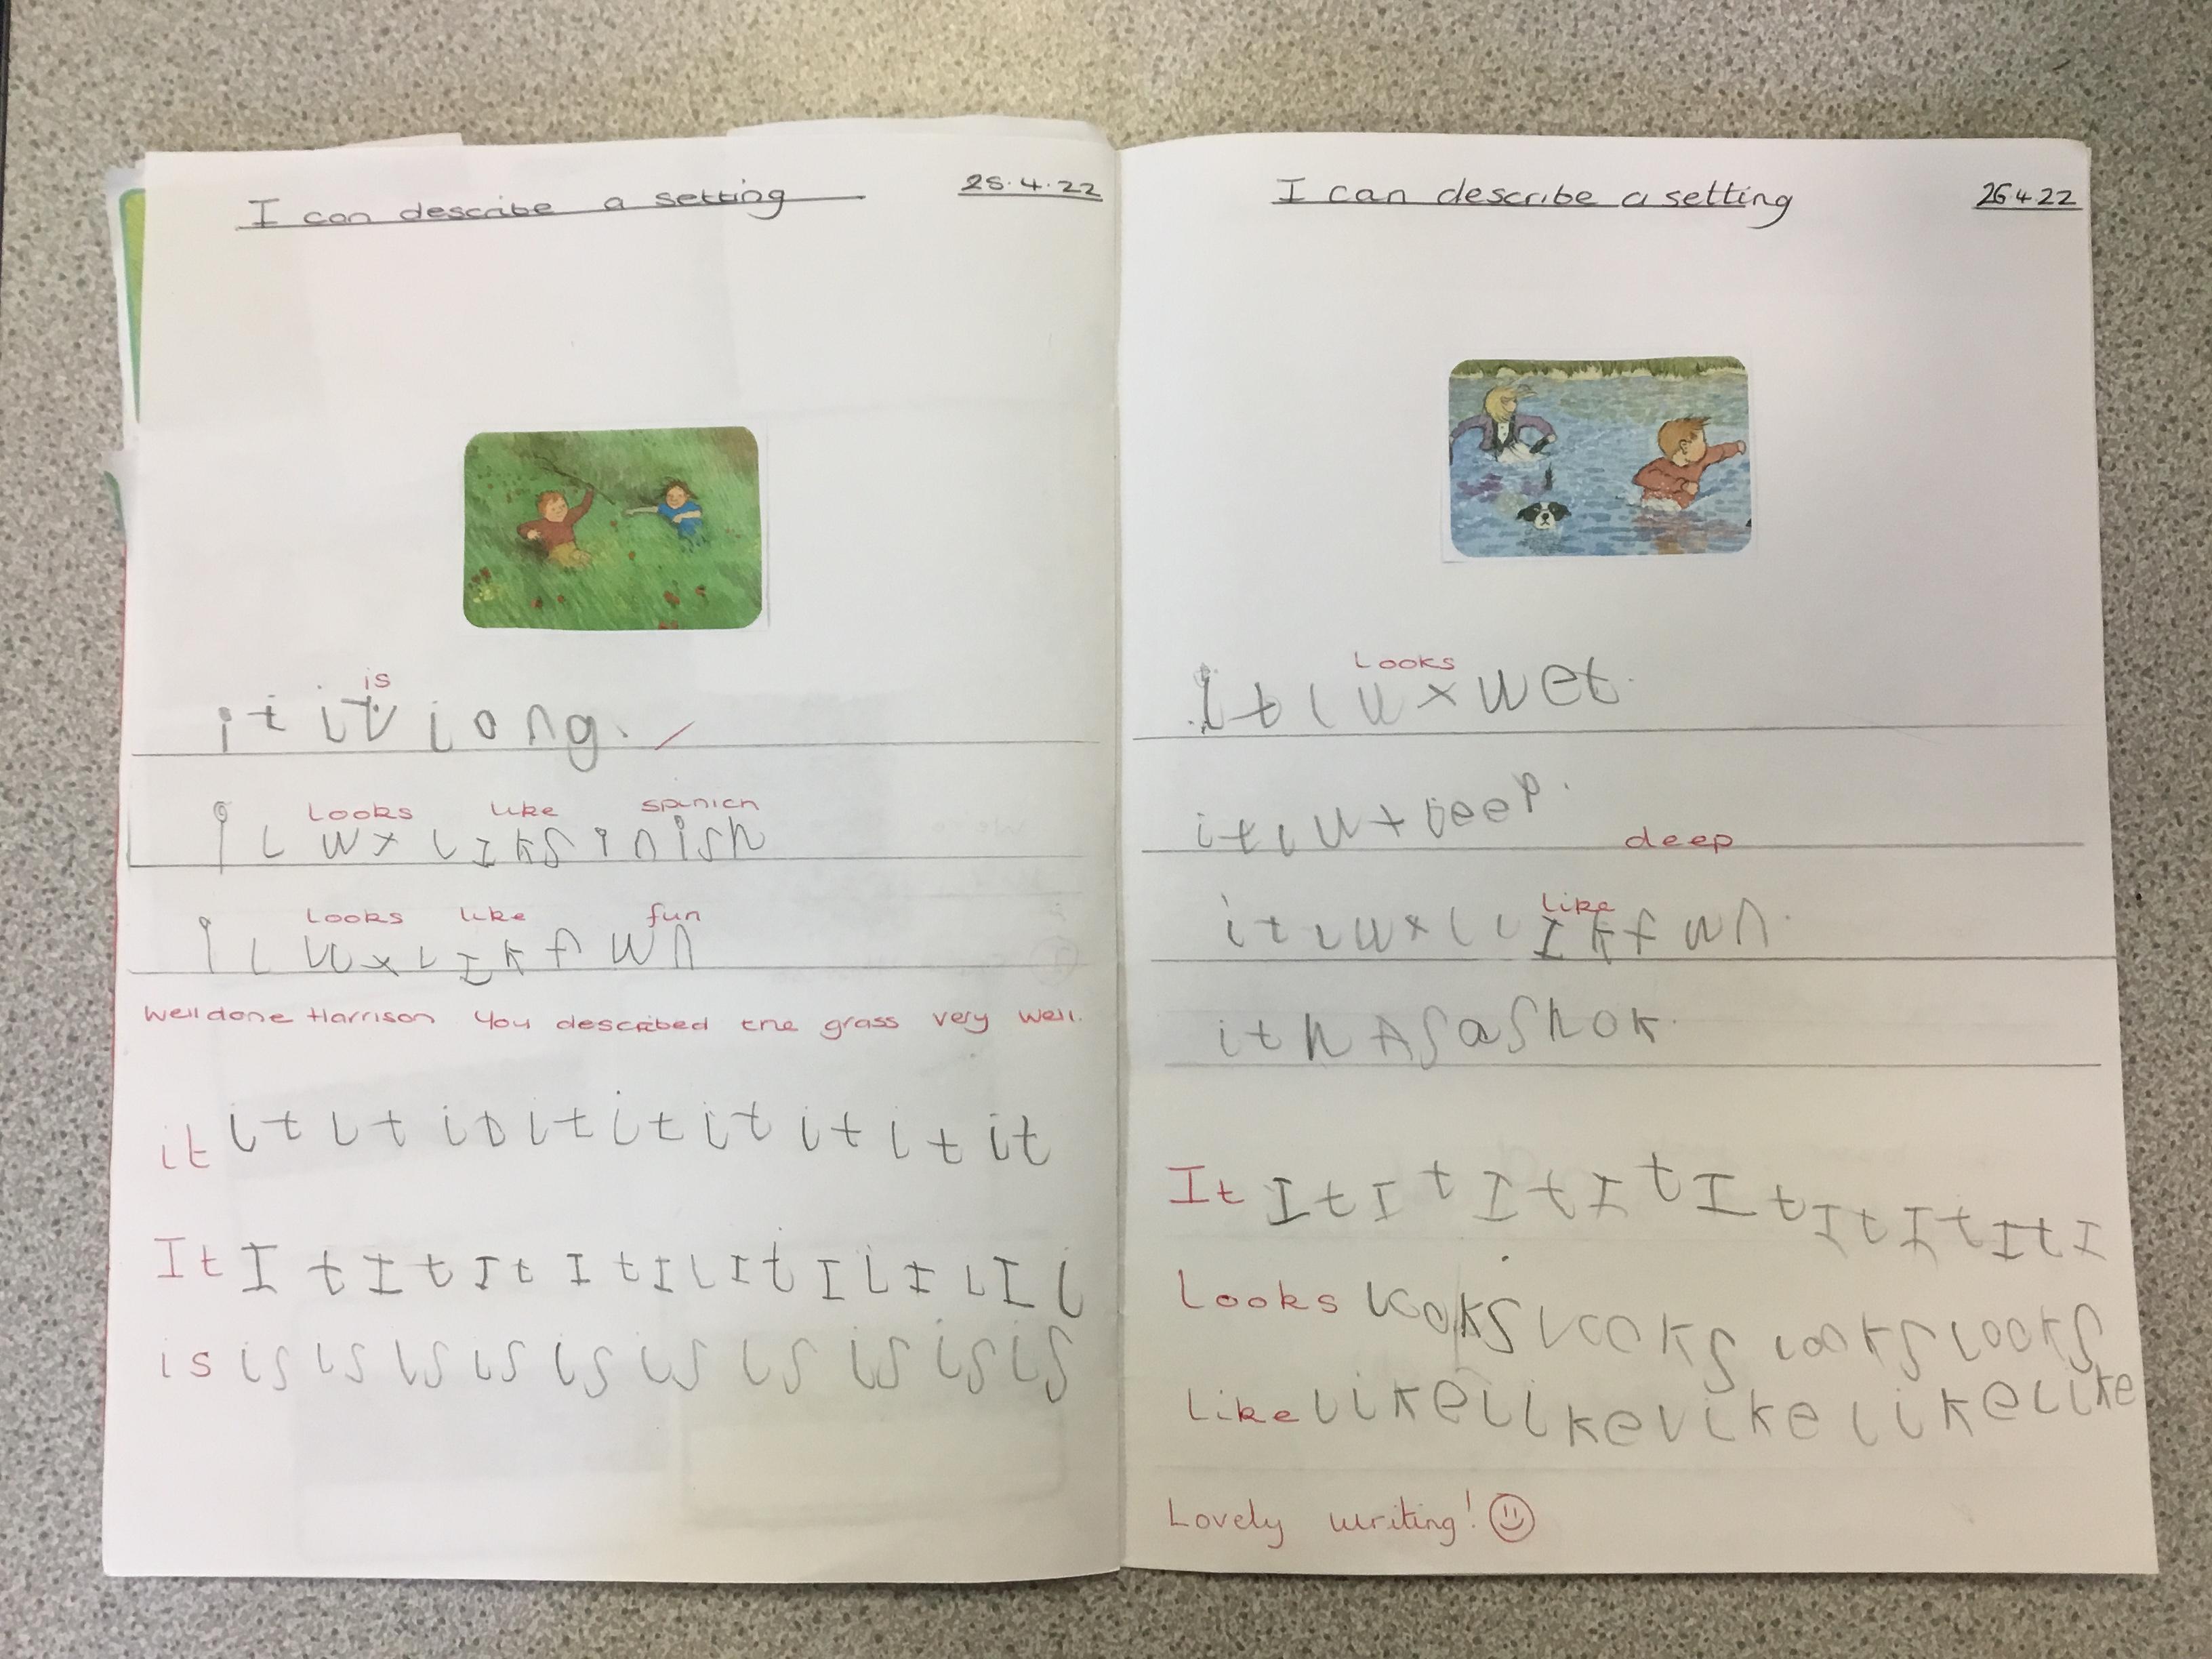 I can describe a setting 25.4.22
is
it it long.
Looks like spinich
i l ux l I k s i n i s h
Looks like fun
i l ux l I k f u n
Well done Harrison You described the grass very well.
it it it it it it it it it it
It It It It It It It It It It
is is is is is is is is is is is
I can describe a setting 26.4.22
Looks
It lux wet.
it lux deep.
deep
like
it lux l i I k f un.
it h A s a s h o k.
It It It It It It It It It I
Looks looks looks looks looks
Like like like like like like
Lovely writing!